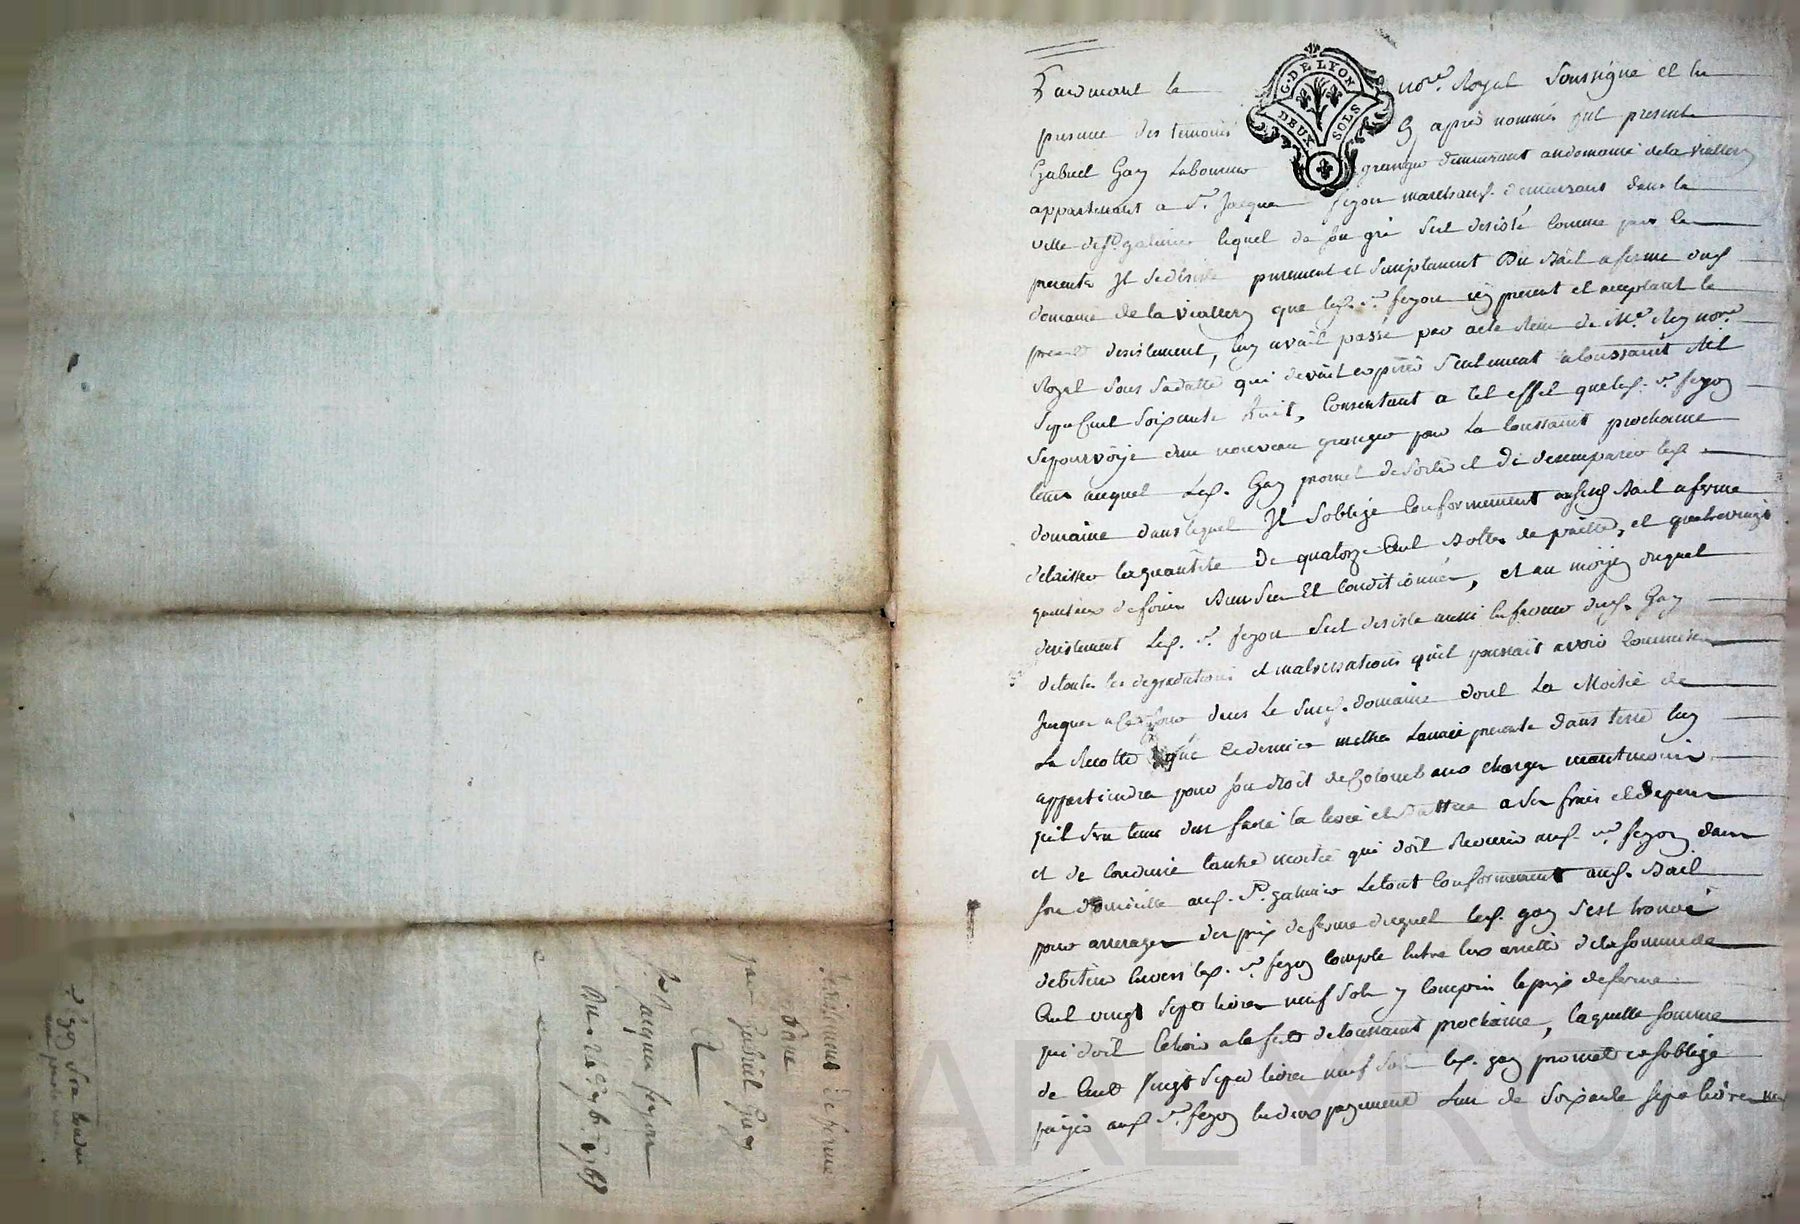 Pardevant le no.re Royal soussigné et en
presence des temoins cy après nommés fut present
Gabriel Gay Laboureur granger demeurant au domaine de la Viallery
appartenant a S.r Jacques feyon marchand demeurant dans la
ville de S.t galmier lequel de son gré s'est desisté comme par les
presentes Il se desiste purement et simplement Du Bail a ferme dud.
domaine de la Viallery que led. s.r feyon icy present et acceptant le
present desistement, luy avait passé par acte Reçu de M.e Rey no.re
Royal sous sa datte qui devait expirer seulement a toussaint Mil
sept Cent soixante huit, Consentant a cet effet que led. s.r feyon
se pourvoye d'un nouveau granger pour La toussaint prochaine
tems auquel Led. Gay promet de sortir et de desemparer led.
domaine dans lequel Il s'oblige Conformement aud. Bail a ferme
de laisser la quantité de quatorze Cent Bottes de paille, et quatrevingt
quintaux de foin Bien sec Et Conditionné, et au moyen duquel
desistement Led. s.r feyon s'est desisté aussi en faveur dud. Gay
de toutes les degradations et malversations qu'il pourrait avoir Commises
Jusques a ce jour dans Le susd. domaine dont La Moitié de
La Recolte que ce dernier mettra L'année presente dans terre luy
appartiendra pour son droit de Colons aux charges neantmoins
qu'il sera tenu d'en faire la levée et Battue a ses frais et depens
et de Conduire l'autre moitié qui doit Revenir aud. s.r feyon dans
son domicille aud. S.t galmier Le tout Conformement aud. Bail
pour arrerages des prix de ferme duquel led. gay s'est trouvé
debiteur envers led. s.r feyon compte entre eux arretté de la somme de
Cent vingt sept livres neuf sols y compris le prix de ferme
qui doit echoir a la fete de toussaint prochaine, laquelle somme
de Cent vingt sept livres neuf sols led. gay promet et s'oblige
payer aud. s.r feyon en deux payements L'un de soixante sept livres
G. DE LYON
DEUX SOLS
Desistement de ferme
par Gabriel Gay
A
S.r Jacques feyon
Du 28 7bre 1765